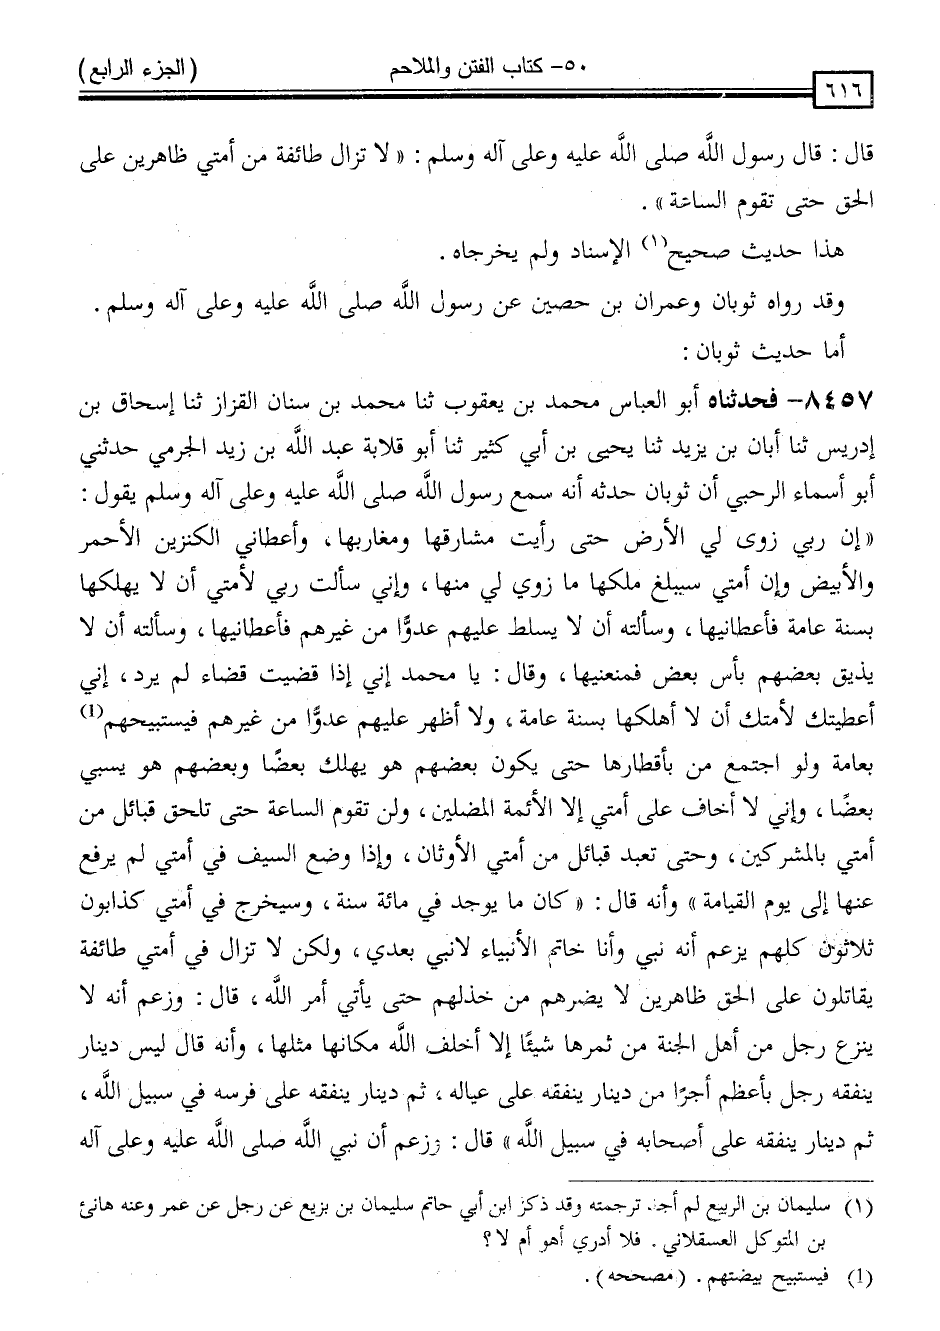 ٥٠- كتاب الفتن والملاحم (الجزء الرابع)
٦١٦
قال : قال رسول اللَّه صلى اللَّه عليه وعلى آله وسلم : « لا تزال طائفة من أمتي ظاهرين على
الحق حتى تقوم الساعة » .
هذا حديث صحيح(١) الإسناد ولم يخرجاه .
وقد رواه ثوبان وعمران بن حصين عن رسول اللَّه صلى اللَّه عليه وعلى آله وسلم .
أما حديث ثوبان :
٨٤٥٧- فحدثناه أبو العباس محمد بن يعقوب ثنا محمد بن سنان القزاز ثنا إسحاق بن
إدريس ثنا أبان بن يزيد ثنا يحيى بن أبي كثير ثنا أبو قلابة عبد اللَّه بن زيد الجرمي حدثني
أبو أسماء الرحبي أن ثوبان حدثه أنه سمع رسول اللَّه صلى اللَّه عليه وعلى آله وسلم يقول :
« إن ربي زوى لي الأرض حتى رأيت مشارقها ومغاربها ، وأعطاني الكنزين الأحمر
والأبيض وإن أمتي سيبلغ ملكها ما زوي لي منها ، وإني سألت ربي لأمتي أن لا يهلكها
بسنة عامة فأعطانيها ، وسألته أن لا يسلط عليهم عدوًّا من غيرهم فأعطانيها ، وسألته أن لا
يذيق بعضهم بأس بعض فمنعنيها ، وقال : يا محمد إني إذا قضيت قضاء لم يرد ، إني
أعطيتك لأمتك أن لا أهلكها بسنة عامة ، ولا أظهر عليهم عدوًّا من غيرهم فيستبيحهم(1)
بعامة ولو اجتمع من بأقطارها حتى يكون بعضهم هو يهلك بعضًا وبعضهم هو يسبي
بعضًا ، وإني لا أخاف على أمتي إلا الأئمة المضلين ، ولن تقوم الساعة حتى تلحق قبائل من
أمتي بالمشركين ، وحتى تعبد قبائل من أمتي الأوثان ، وإذا وضع السيف في أمتي لم يرفع
عنها إلى يوم القيامة » وأنه قال : « كان ما يوجد في مائة سنة ، وسيخرج في أمتي كذابون
ثلاثون كلهم يزعم أنه نبي وأنا خاتم الأنبياء لانبي بعدي ، ولكن لا تزال في أمتي طائفة
يقاتلون على الحق ظاهرين لا يضرهم من خذلهم حتى يأتي أمر اللَّه ، قال : وزعم أنه لا
ينزع رجل من أهل الجنة من ثمرها شيئًا إلا أخلف اللَّه مكانها مثلها ، وأنه قال ليس دينار
ينفقه رجل بأعظم أجرًا من دينار ينفقه على عياله ، ثم دينار ينفقه على فرسه في سبيل اللَّه ،
ثم دينار ينفقه على أصحابه في سبيل اللَّه » قال : وزعم أن نبي اللَّه صلى اللَّه عليه وعلى آله
(١) سليمان بن الربيع لم أجد ترجمته وقد ذكر ابن أبي حاتم سليمان بن بزيع عن رجل عن عمر وعنه هانئ
بن المتوكل العسقلاني . فلا أدري أهو أم لا ؟
(1) فيستبيح بيضتهم . ( مصححه ) .